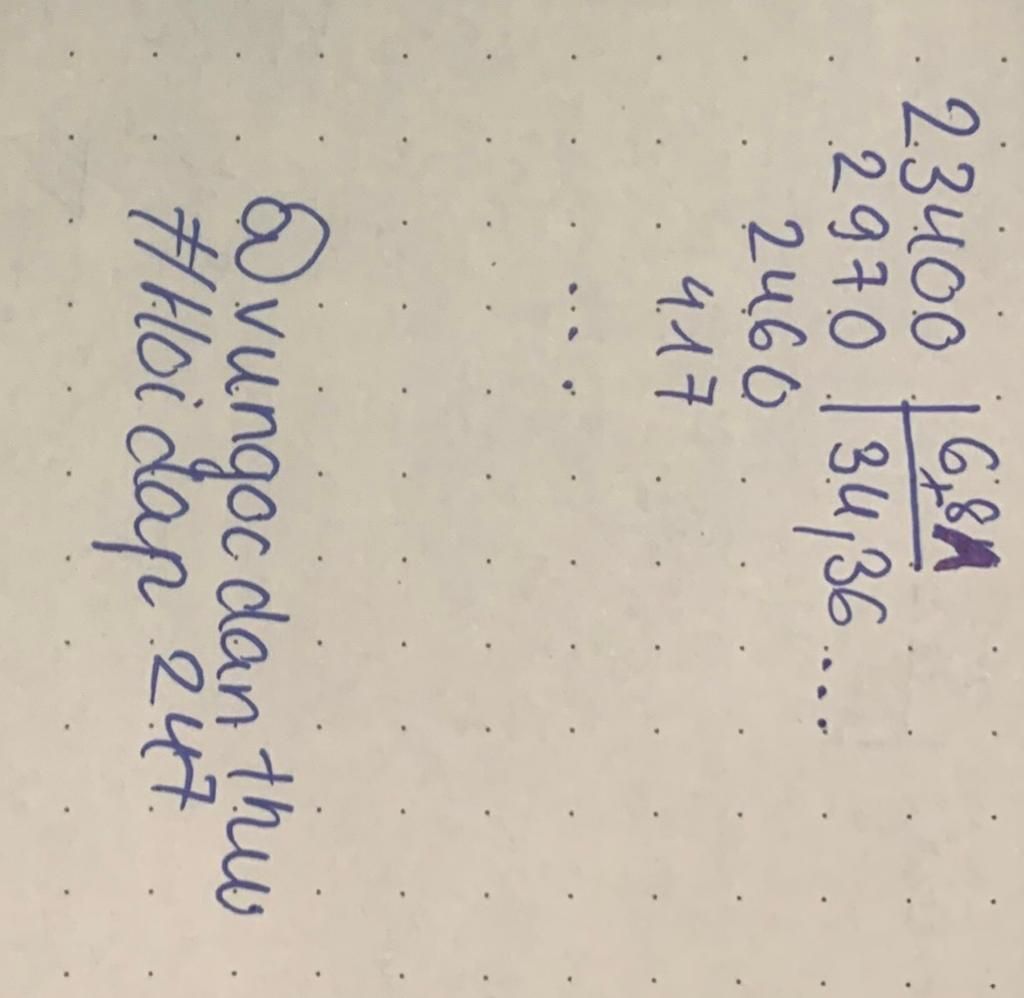 23400 6,81
2970 34,36...
2460
417
...
@vungocdanthu
#Hoidap 247